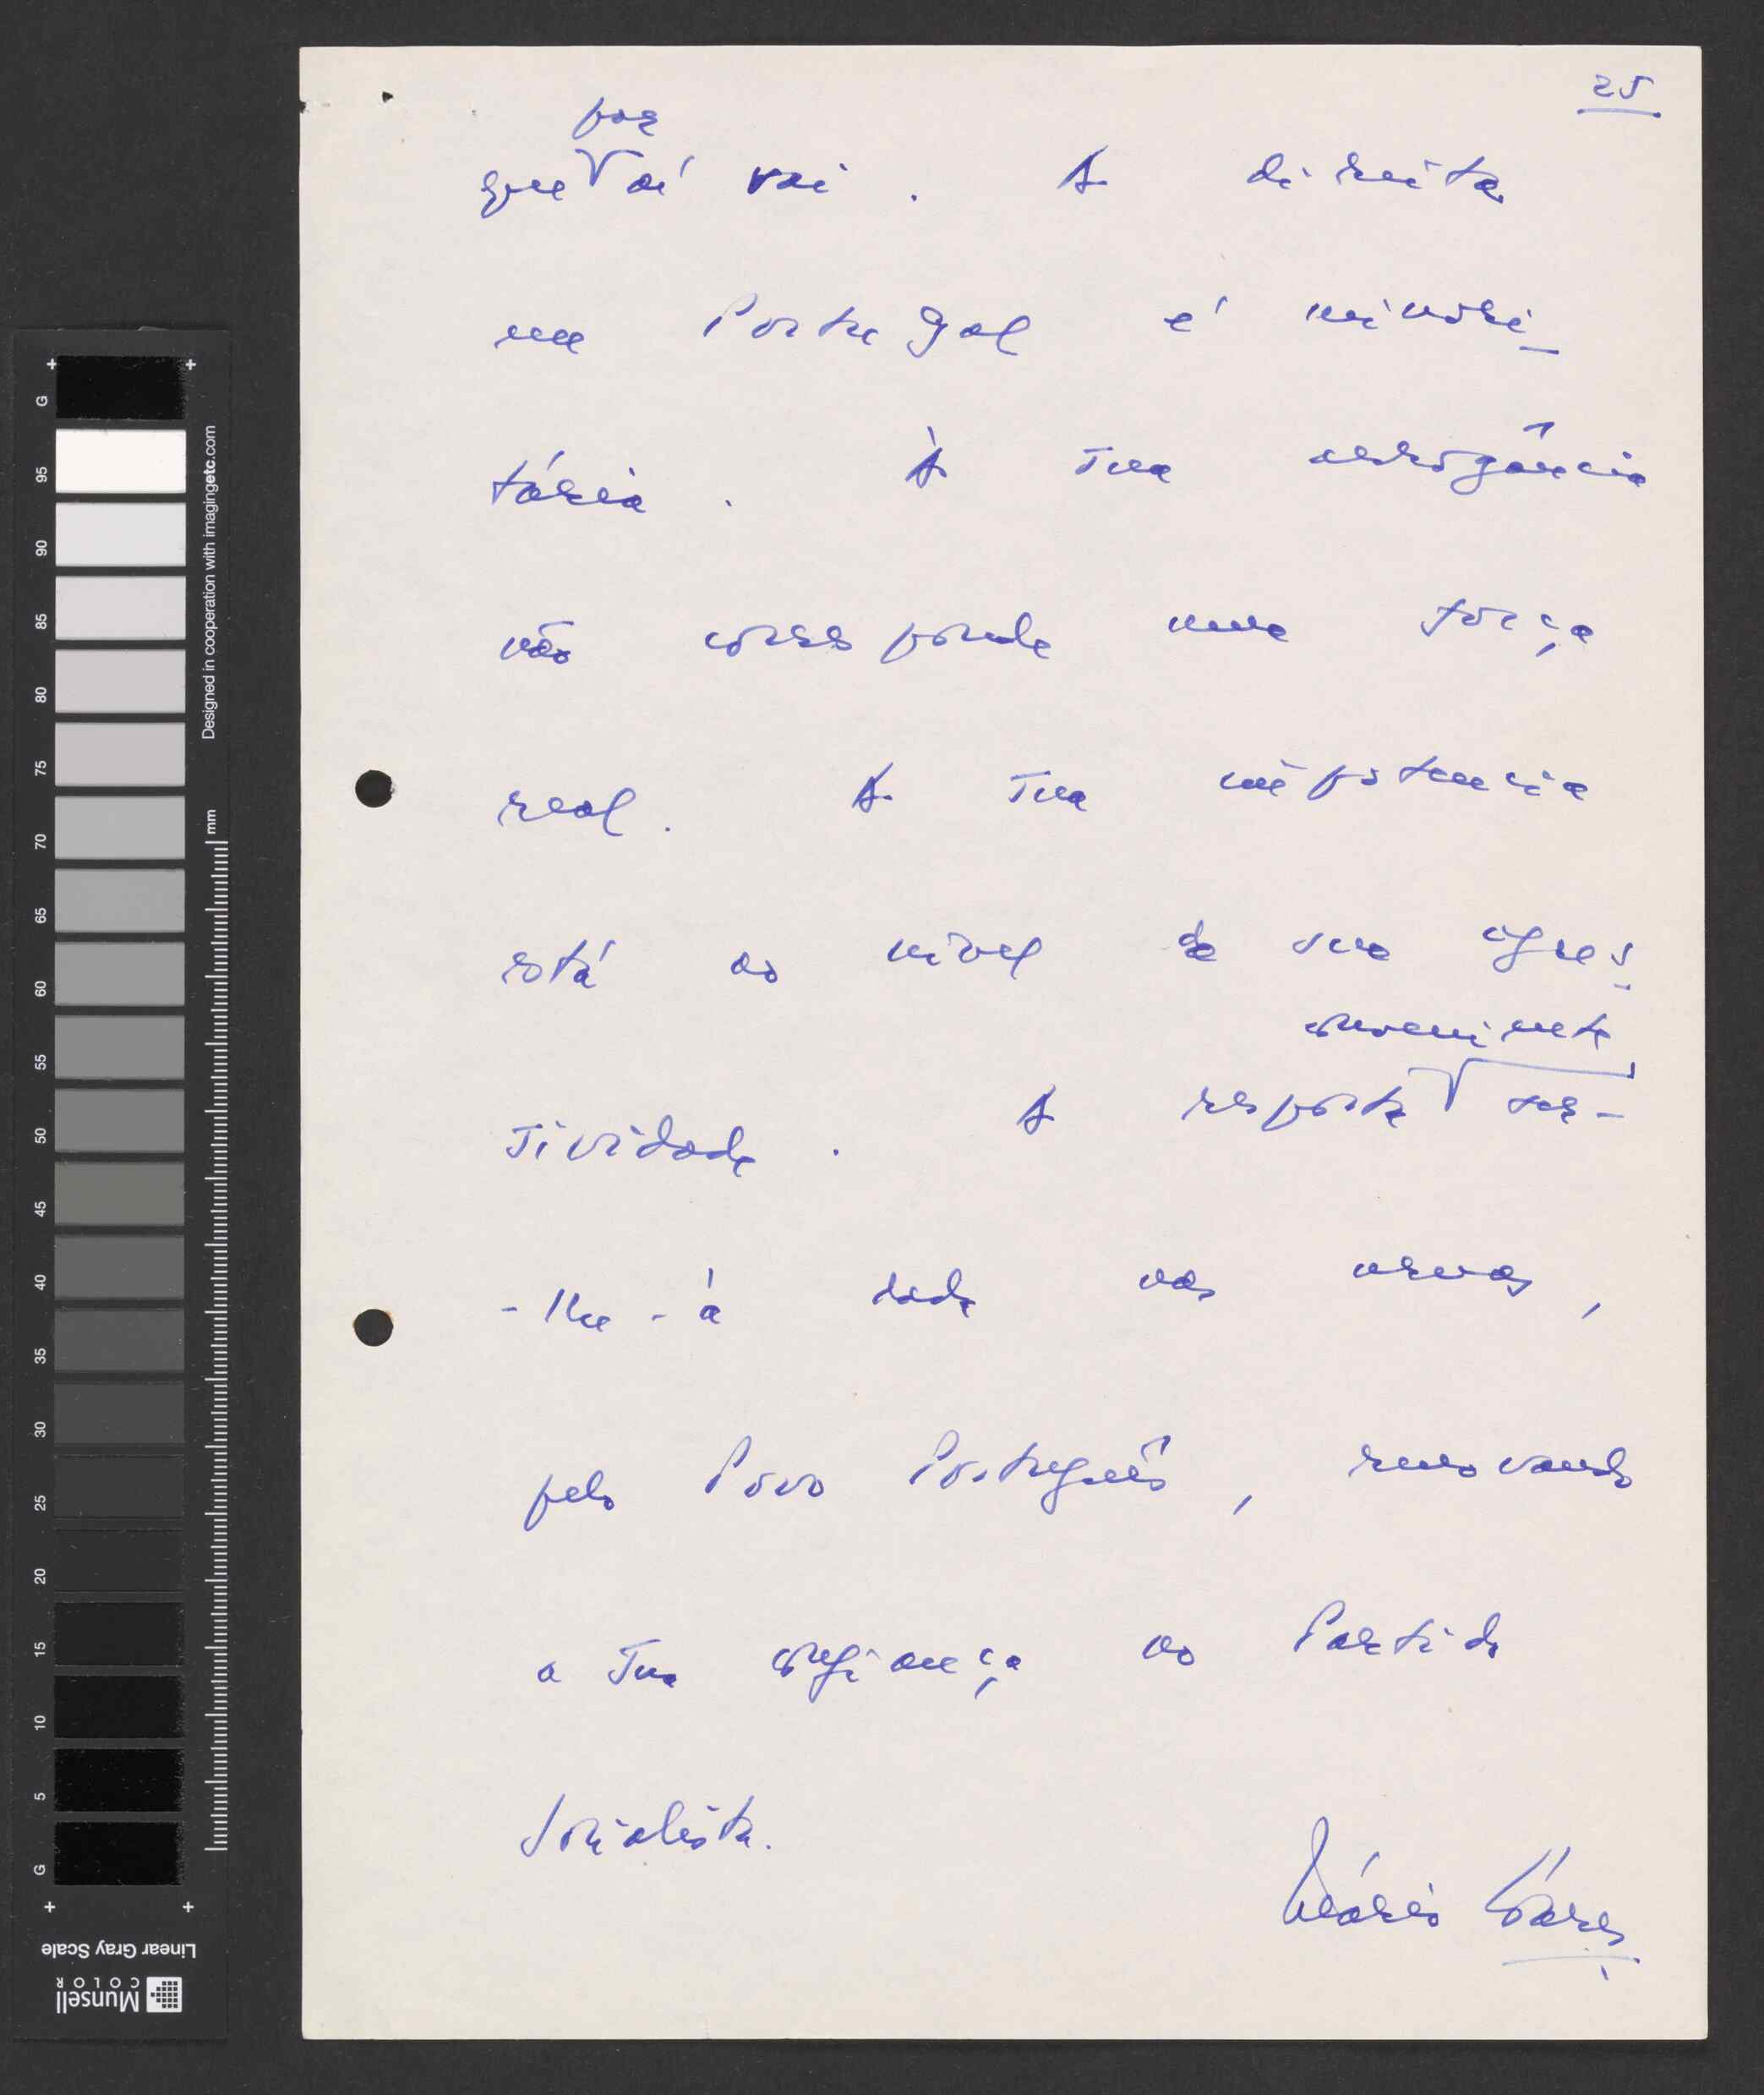 25
por
que aí vai. A direita
em Portugal é minori-
tária. À sua arrogância
não corresponde uma força
real. A sua impotencia
está ao nivel da sua agres-
conveniente
sividade. A resposta ser-
-lhe-á dada nas urnas,
pelo Povo Português, renovando
a sua confiança no Partido
Socialista.
Mário Soares
G 95 90 85 80 75 70 65 60 55 50 45 40 35 30 25 20 15 10 5 G
Designed in cooperation with imagingetc.com
mm
Linear Gray Scale
Munsell
COLOR